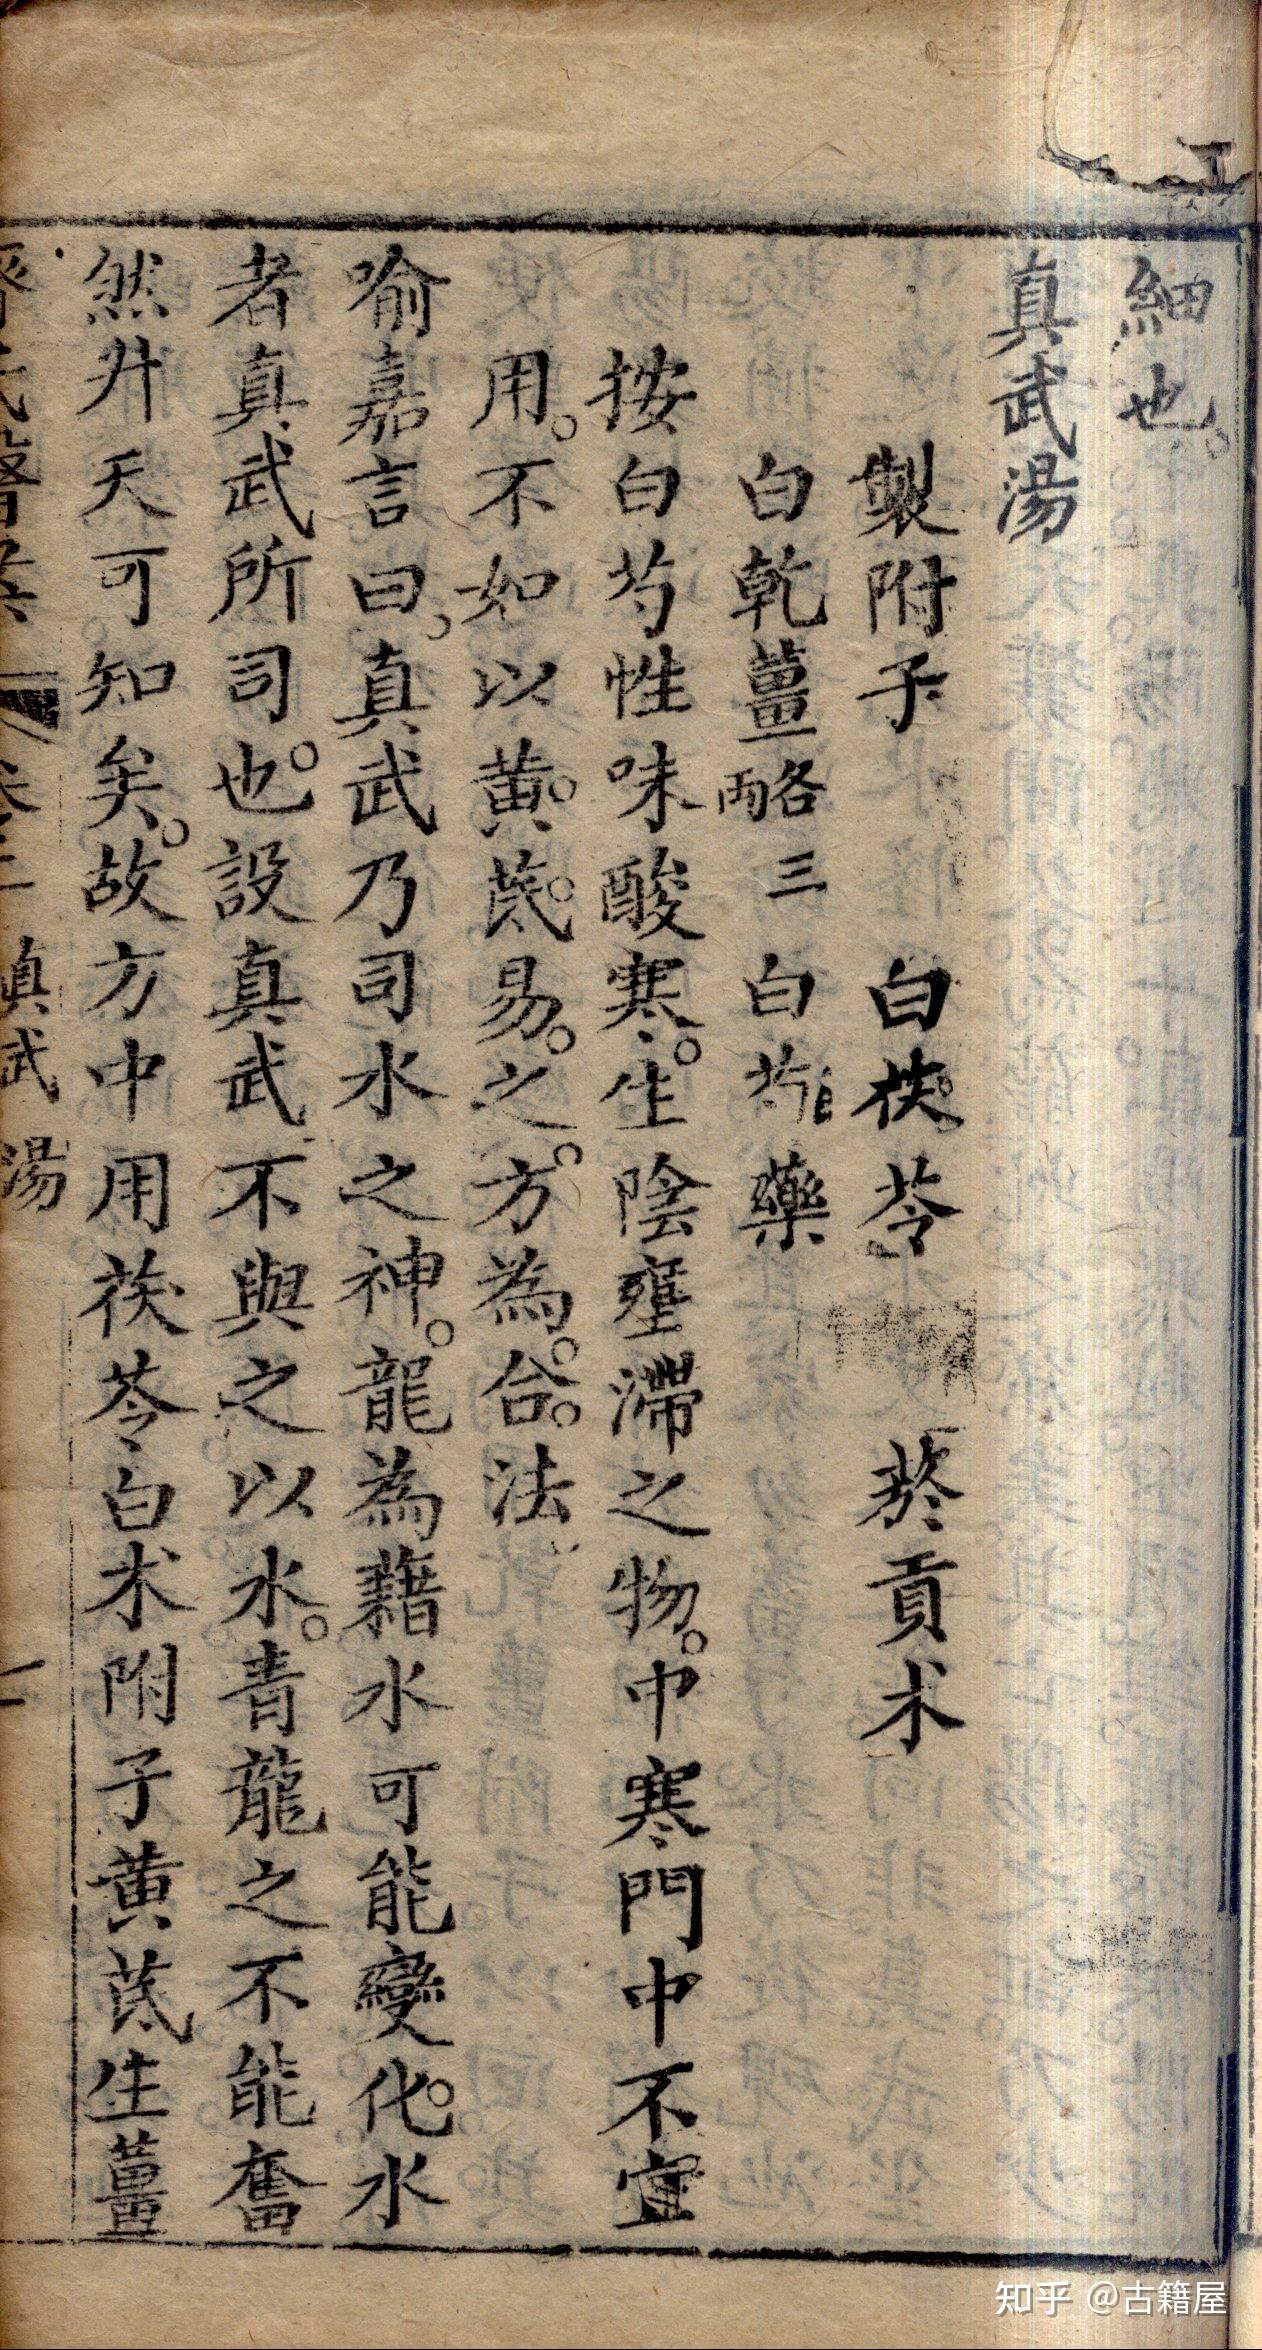 細也。
真武湯
製附子　白茯苓　於貢术
白乾薑　白芍藥
按白芍性味酸寒。生陰壅滯之物。中寒門中不宜
用。不如以黃芪易之。方為合法
喻嘉言曰。真武乃司水之神。龍為藉水可能變化。水
者真武所司也。設真武不與之以水。青龍之不能奮
然升天可知矣。故方中用茯苓白术附子黃芪生薑
真武湯
知乎 @古籍屋